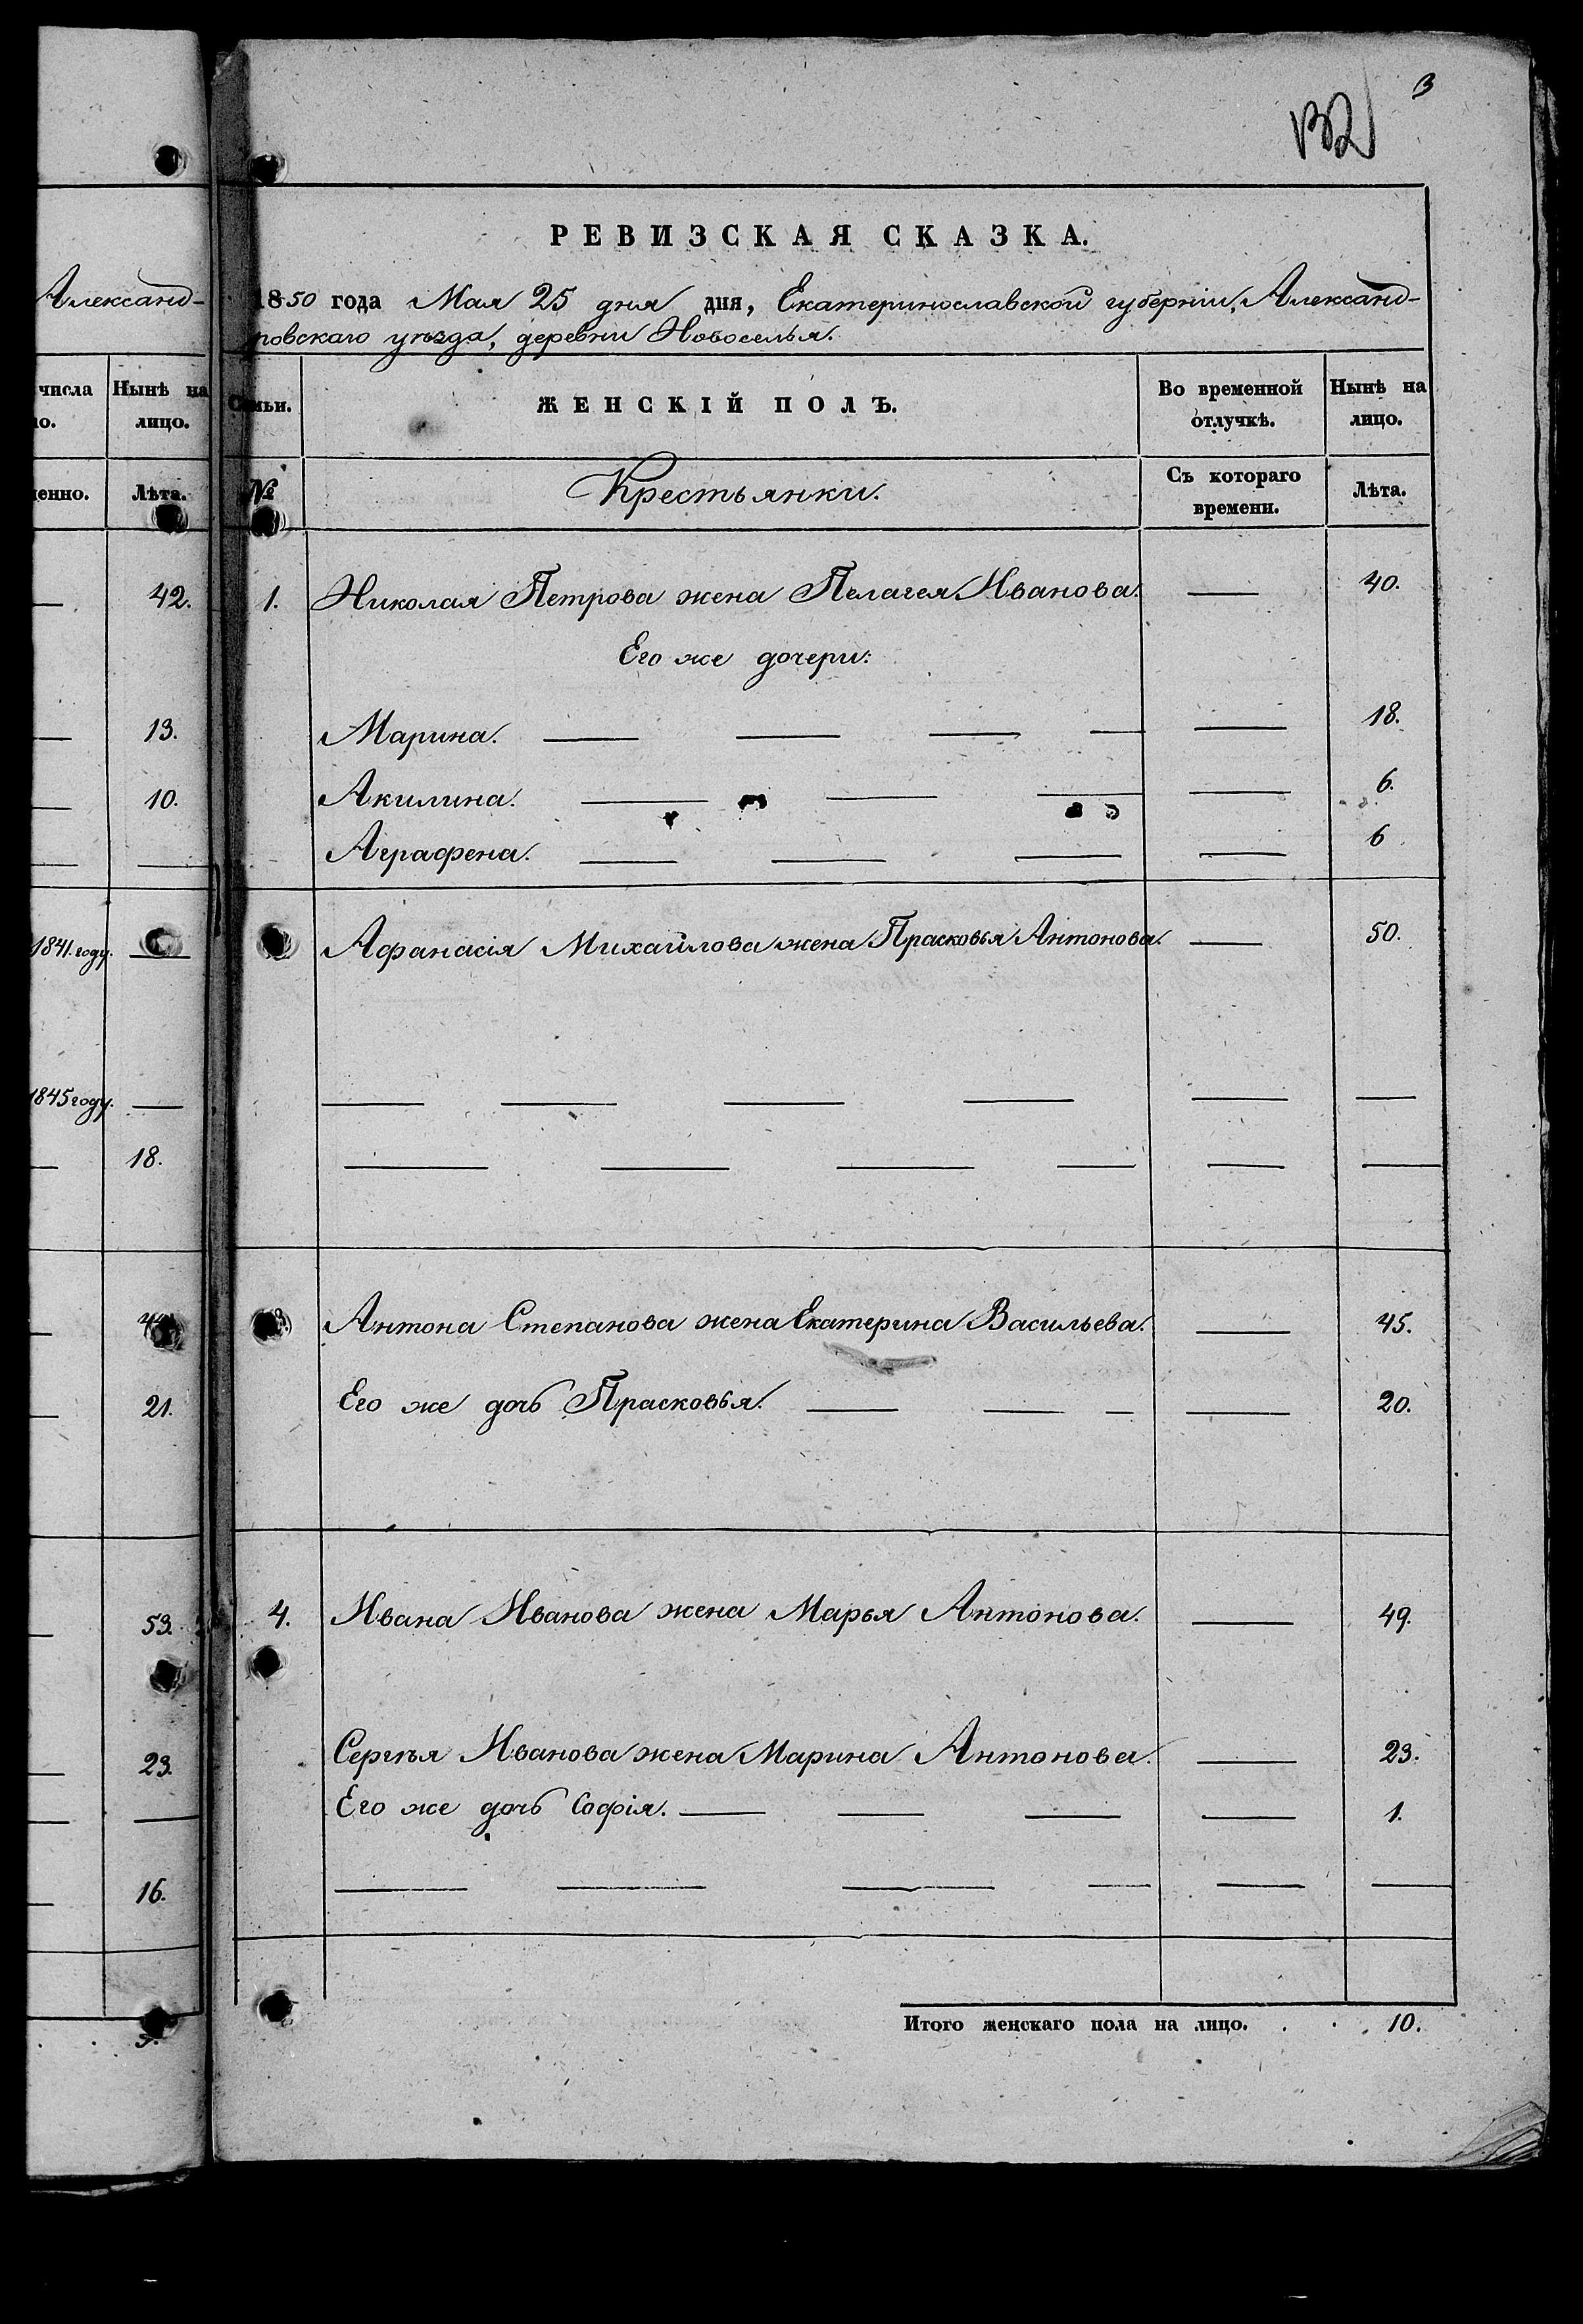 Александ-
числа
Нынѣ на
ло.
лицо.
Лѣта.
42.
13.
10.
1841. году.
1845 году.
18.
21.
53.
23.
16.
3
132
РЕВИЗСКАЯ СКАЗКА.
1850 года Мая 25 дня дня, Екатеринославской губернiи, Александ-
ровскаго уѣзда, деревни Новоселья.
Семьи.
ЖЕНСКІЙ ПОЛЪ.
Во временной
отлучкѣ.
Нынѣ на
лицо.
№
Крестьянки.
Съ котораго
времени.
Лѣта.
1. Николая Петрова жена Пелагея Иванова. 40.
Его же дочери:
Марина. 18.
Акилина. 6.
Аграфена. 6
Афанасія Михайлова жена Прасковья Антонова. 50.
Антона Степанова жена Екатерина Васильева. 45.
Его же дочь Прасковья. 20.
4. Ивана Иванова жена Марья Антонова. 49.
Сергѣя Иванова жена Марина Антонова. 23.
Его же дочь Софія. 1.
Итого женскаго пола на лицо. 10.